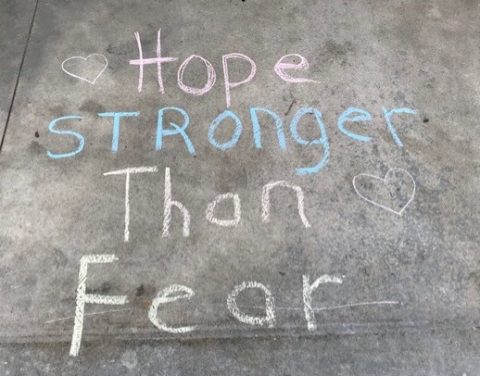 Hope
STRonger
Than
Fear